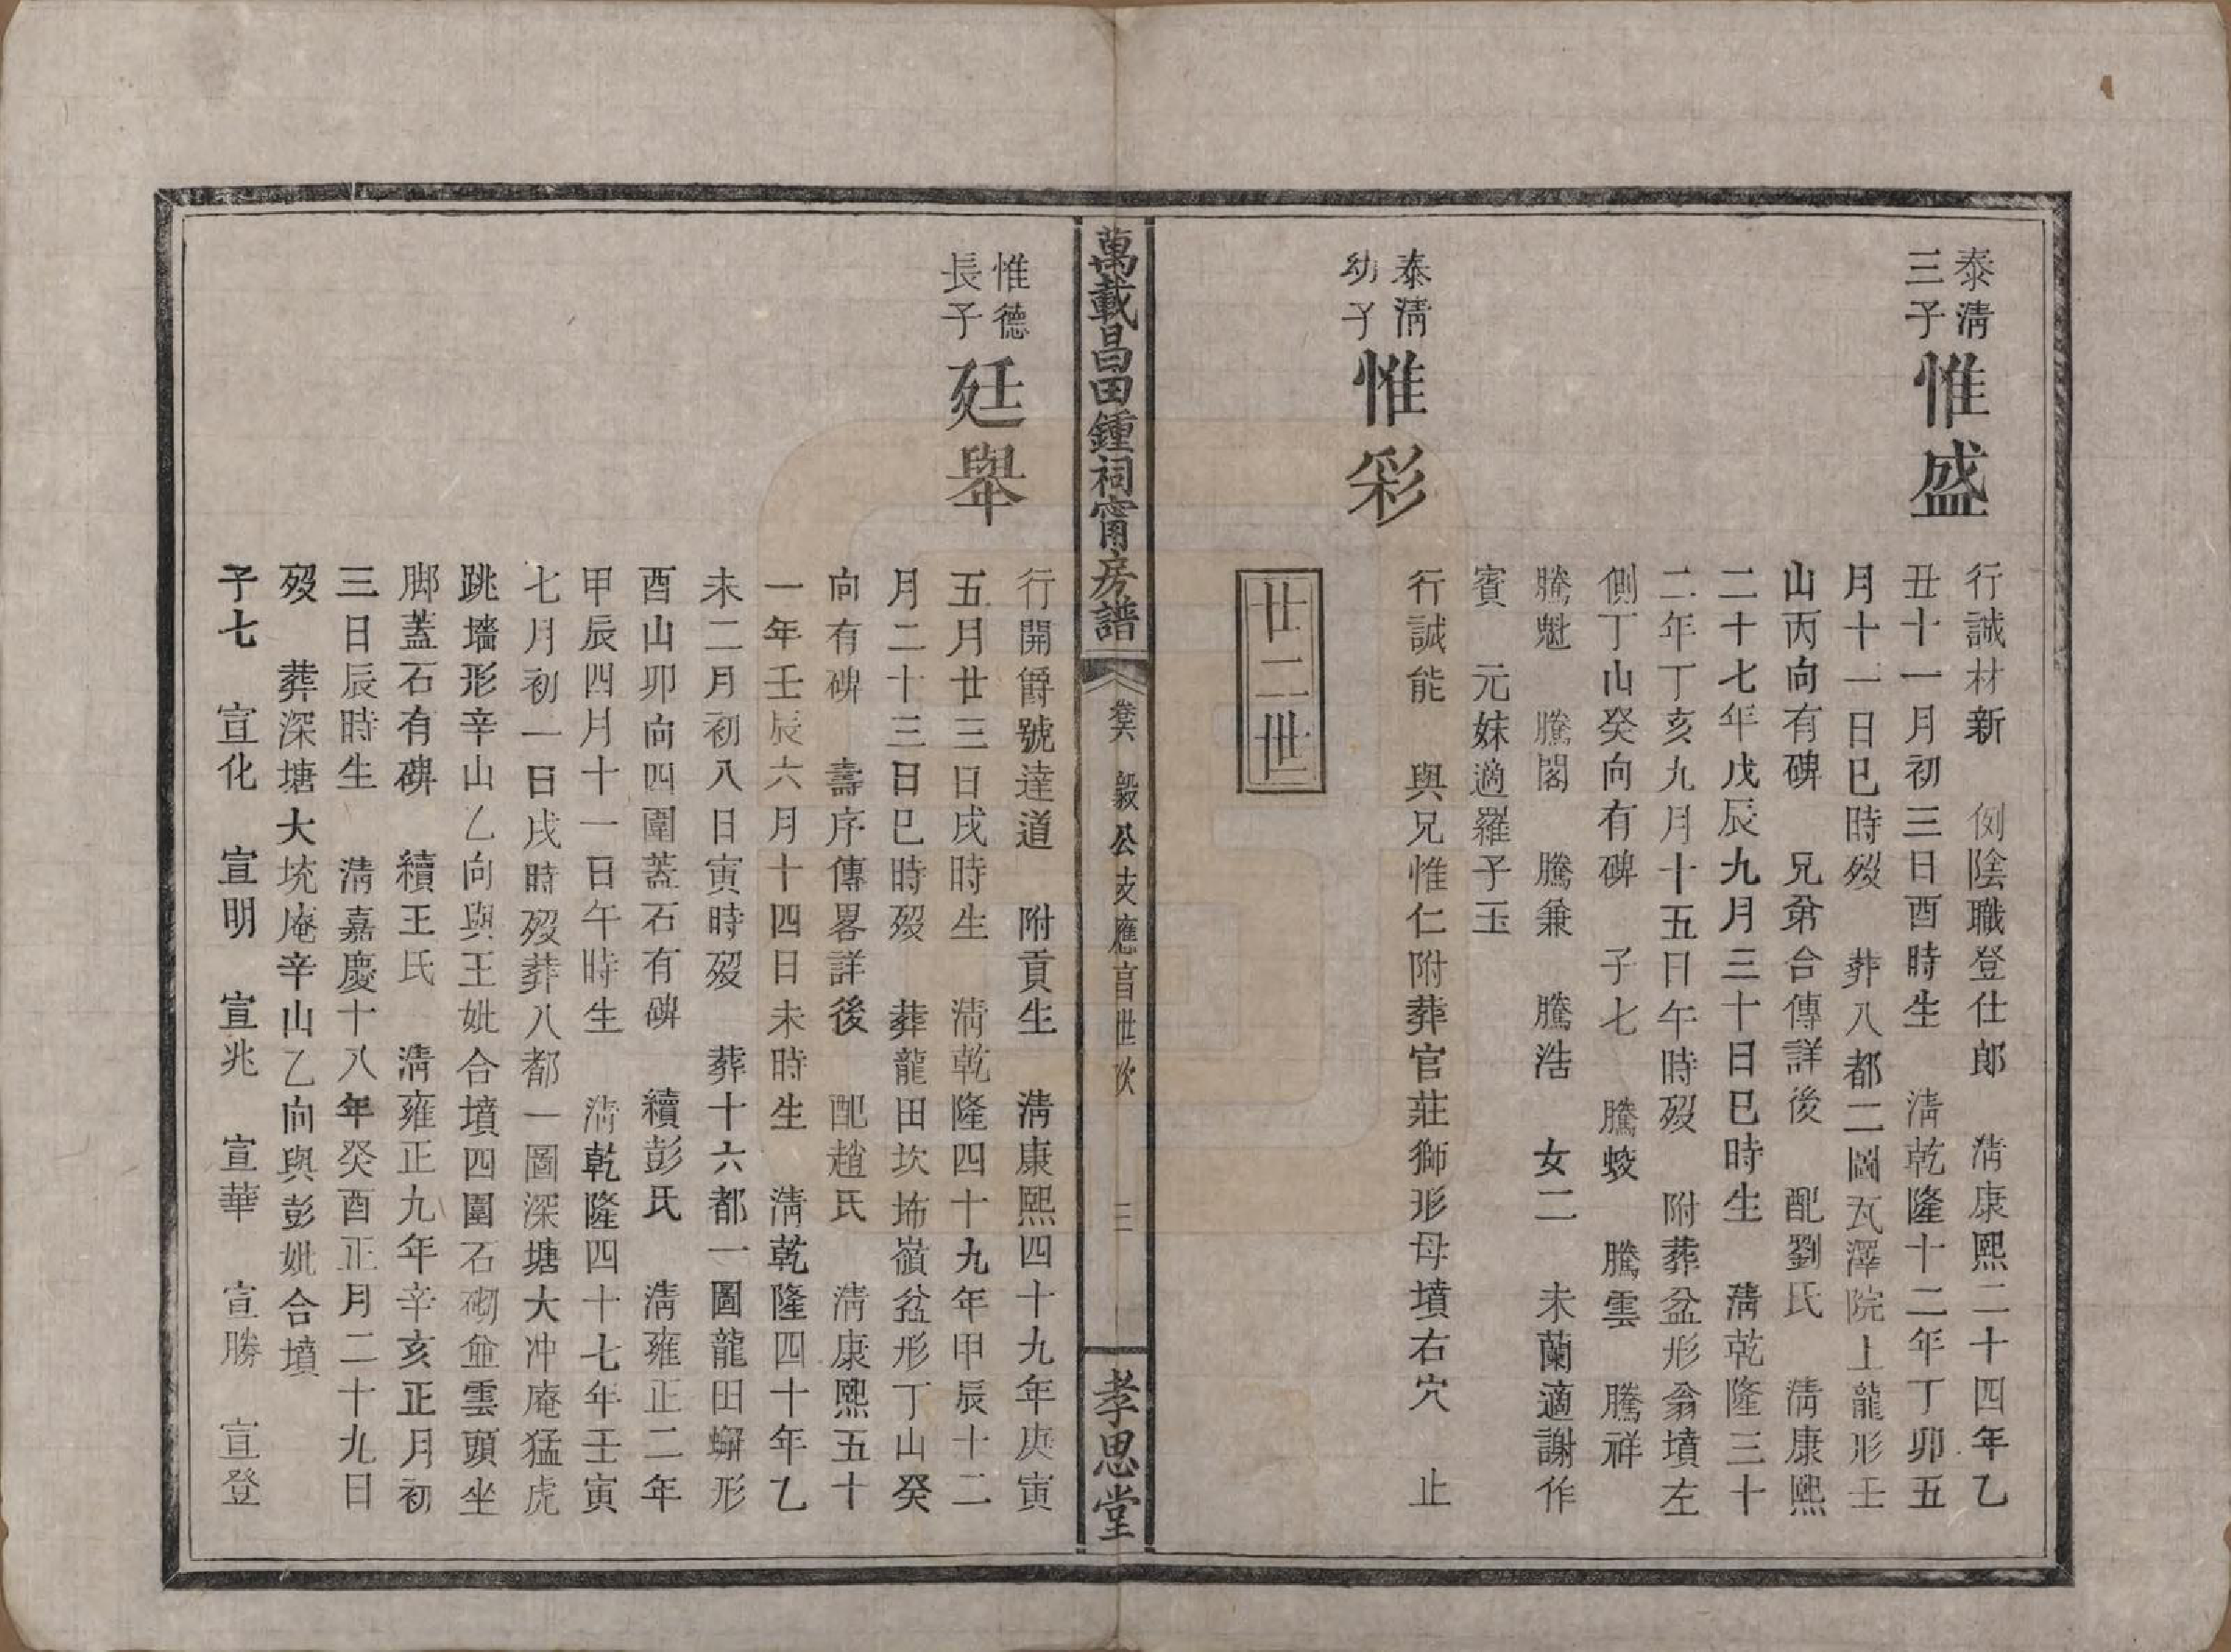 泰淸
三子
惟盛
行誠材新　例陰職登仕郎　淸康熙二十四年乙
丑十一月初三日酉時生　淸乾隆十二年丁卯五
月十一日巳時歿　葬八都二圖瓦澤院上龍形壬
山丙向有碑　兄弟合傳詳後　配劉氏　淸康熙
二十七年戊辰九月三十日巳時生　淸乾隆三十
二年丁亥九月十五日午時歿　附葬盆形翁墳左
側丁山癸向有碑　子七　騰蛟　騰雲　騰祥
騰魁　騰閣　騰兼　騰浩　女二　未蘭適謝作
賓　元妹適羅子玉
泰淸
幼子
惟彩
行誠能　與兄惟仁附葬官莊獅形母墳右穴　止
廿二世
萬載昌田鍾祠甯房譜
卷六　毅公支應昌世次　三
孝思堂
惟德
長子
廷舉
行開爵號達道　附貢生　淸康熙四十九年庚寅
五月廿三日戌時生　淸乾隆四十九年甲辰十二
月二十三日巳時歿　葬龍田坎㘵嶺盆形丁山癸
向有碑　壽序傳畧詳後　配趙氏　淸康熙五十
一年壬辰六月十四日未時生　淸乾隆四十年乙
未二月初八日寅時歿　葬十六都一圖龍田蠏形
酉山卯向四圍蓋石有碑　續彭氏　淸雍正二年
甲辰四月十一日午時生　淸乾隆四十七年壬寅
七月初一日戌時歿葬八都一圖深塘大冲庵猛虎
跳墻形辛山乙向與王妣合墳四圍石砌並雲頭坐
脚蓋石有碑　續王氏　淸雍正九年辛亥正月初
三日辰時生　淸嘉慶十八年癸酉正月二十九日
歿　葬深塘大坑庵辛山乙向與彭妣合墳
子七　宣化　宣明　宣兆　宣華　宣勝　宣登